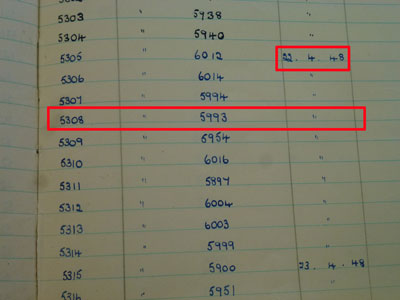 5303 " 5938 "
5304 " 5940 "
5305 " 6012 22.4.48
5306 " 6014 "
5307 " 5994 "
5308 " 5993 "
5309 " 5954 "
5310 " 6016 "
5311 " 5897 "
5312 " 6004 "
5313 " 6003 "
5314 " 5999 "
5315 " 5900 23.4.48
5316 " 5951 "